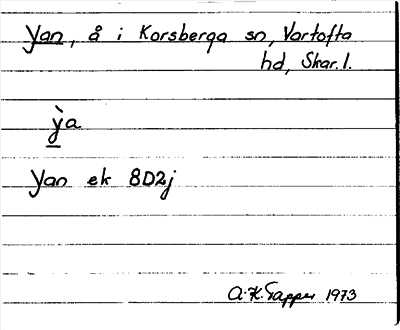 Yan, å i Korsberga sn, Vartofta
hd, Skar. l.
ỳ̠a
Yan ek 8D2j
A.K. Tapper 1973